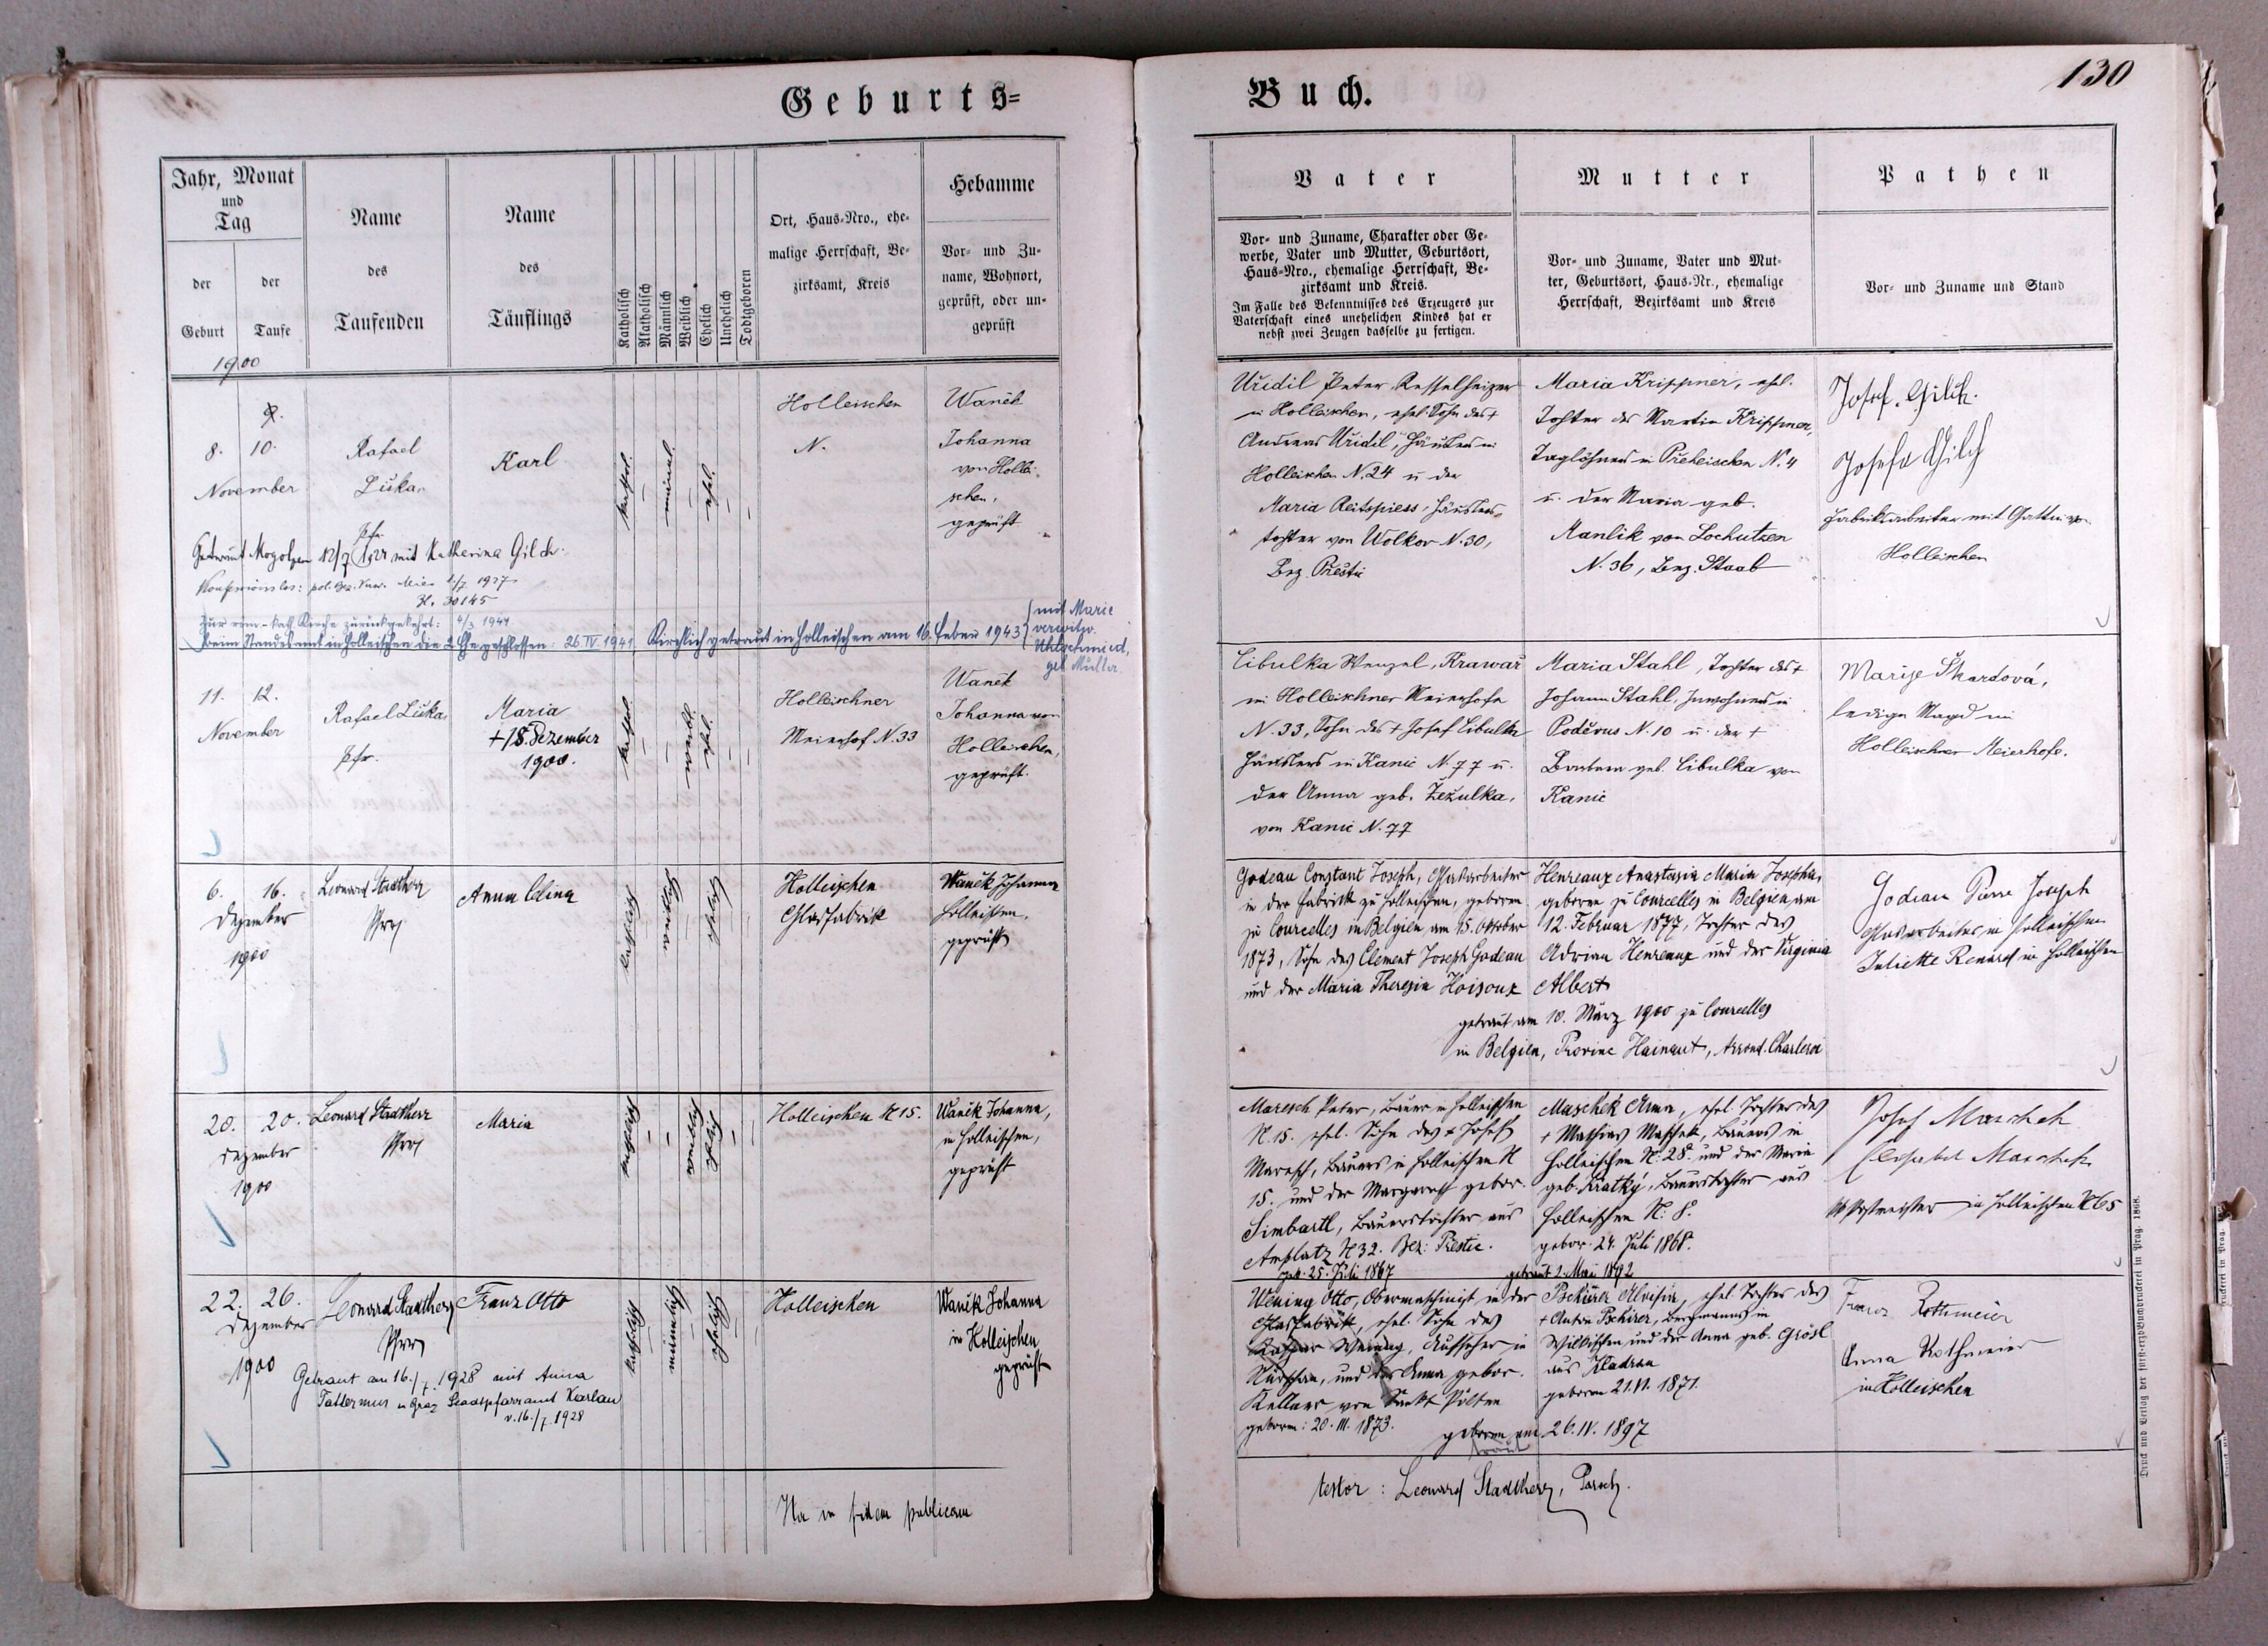 Geburts=
Buch.
130
Jahr, Monat
und
Tag
der
Geburt
der
Taufe
Name
des
Taufenden
Name
des
Täuflings
Katholisch
Akatholisch
Männlich
Weiblich
Ehelich
Unehelich
Todtgeboren
Ort, Haus-Nro., ehe-
malige Herrschaft, Be-
zirksamt, Kreis
Hebamme
Vor- und Zu-
name, Wohnort,
geprüft, oder un-
geprüft
Vater
Vor- und Zuname, Charakter oder Ge-
werbe, Vater und Mutter, Geburtsort,
Haus-Nro., ehemalige Herrschaft, Be-
zirksamt und Kreis.
Im Falle des Bekenntnisses des Erzeugers zur
Vaterschaft eines unehelichen Kindes hat er
nebst zwei Zeugen dasselbe zu fertigen.
Mutter
Vor- und Zuname, Vater und Mut-
ter, Geburtsort, Haus-Nr., ehemalige
Herrschaft, Bezirksamt und Kreis
Pathen
Vor- und Zuname und Stand
1900
8. 10.
November
Rafael
Luka,
Pfr.
Karl
kathol.
männl.
ehel.
Holleischen
N.
Waněk
Johanna
von Hollei-
schen,
geprüft
Getraut 12/7 mit Katherina Gilch.
Konfessionslos: pol. Bez. 1/7 1927
Zl. 30145
Zur röm.-kath. Kirche zurückgekehrt: 4/3 1941
Beim Standesamt in Holleischen die 2. Ehe geschlossen: 26. IV. 1941. Kirchlich getraut in Holleischen am 16. Feber 1943
mit Marie
verwitw.
geb. Müller.
Uřidil Peter, Kesselheizer
in Holleischen, ehel. Sohn des +
Andreas Uřidil, Häuslers in
Holleischen N. 24 u. der
Maria Reitspiess, Häuslers-
tochter von Wolkov N. 30,
Bez. Přestic
Maria Krippner, ehel.
Tochter des Martin Krippner,
Taglöhners in Přeheischen N. 4
u. der Maria geb.
Manlik von Lochutzen
N. 36, Bez. Staab
Josef Gilch.
Josefa Gilch
Fabriksarbeiter mit Gattin von
Holleischen
11. 12.
November
Rafael Luka,
Pfr.
Maria
+ 18. Dezember
1900.
kathol.
weibl.
ehel.
Holleischner
Meierhof N. 33
Waněk
Johanna von
Holleischen,
geprüft.
Cibulka Wenzel, Krawař
im Holleischner Meierhofe
N. 33, Sohn des + Josef Cibulka
Häuslers in Kanic N. 77 u.
der Anna geb. Žežulka,
von Kanic N. 77
Maria Stahl, Tochter des +
Johann Stahl, Inwohners in
Poděvus N. 10 u. der +
Barbara geb. Cibulka von
Kanic
Marije Škardová,
ledige Magd im
Holleischner Meierhofe.
6. 16.
Dezember
1900
Leonard Stadtherr
Pfarr
Anna Celina
katholisch
weiblich
ehelich
Holleischen
Glasfabrik
Waněk Johanna
Holleischen,
geprüft
Godeau Constant Joseph, Glasarbeiter
in der Fabrik zu Holleischen, geboren
zu Courcelles in Belgien am 15. Oktober
1873, Sohn des Clement Joseph Godeau
und der Maria Theresia Hoisoux
Henreaux Anastasia Maria Josepha,
geboren zu Courcelles in Belgien am
12. Februar 1877, Tochter des
Adrian Henreaux und der Virginia
Albert
getraut am 10. März 1900 zu Courcelles
in Belgien, Provinc Hainaut, Arrond. Charleroi
Godeau Pierre Joseph
Glasarbeiter in Holleischen
Juliette Renard in Holleischen
20. 20.
Dezember
1900
Leonard Stadtherr
Pfarr
Maria
katholisch
weiblich
ehelich
Holleischen N 15.
Waněk Johanna,
in Holleischen,
geprüft
Maresch Peter, Bauer in Holleischen
N. 15. ehel. Sohn des + Josef
Maresch, Bauers in Holleischen N
15. und der Margareth gebor.
Simbartl, Bauerstochter aus
Amplatz N 32. Bez: Prestic.
geb. 25. Juli 1867
Maschek Anna, ehel. Tochter des
+ Mathias Maschek, Bauers in
Holleischen N: 28. und der Maria
geb. Kratky, Bauerstochter aus
Holleischen N: 8.
gebor. 24. Juli 1868.
getraut 2. Mai 1892
Josef Maschek
Elisabet Maschek
Postmeister in Holleischen N 65
22. 26.
Dezember
1900
Leonard Stadtherr
Pfarr
Franz Otto
katholisch
männlich
ehelich
Holleischen
Waněk Johanna
in Holleischen
geprüft
Getraut am 16./7. 1928 mit Anna
Tattermus in Graz Stadtpfarramt Karlau
v. 16./7. 1928
Wening Otto, Obermaschinist in der
Glasfabrik, ehel. Sohn des
Kaspar Wening, Aufseher in
Nürschan, und der Anna gebor.
Kellner von Sankt Pölten
geboren: 20. III. 1873.
Pschirer Aloisia, ehel. Tochter des
+ Anton Pschirer, Bergmanns in
Wilkischen und der Anna geb. Grösl
aus Kladrau
geboren 21. VI. 1871.
geboren am 26. IV. 1897
traut
Franz Rothmeier
Anna Rothmeier
in Holleischen
Ita in fidem publicam
testor: Leonard Stadtherr, Paroch.
Druck und Verlag der fürst-erzb. Buchdruckerei in Prag. 1868.